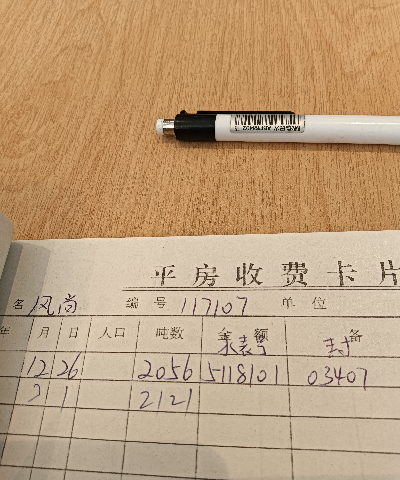 M&G晨光
平房收费卡片
名 风尚 编号 117107 单位
年 月 日 人口 吨数 金额 水表号 备 封
12 26 2056 5118101 03407
2 1 2121